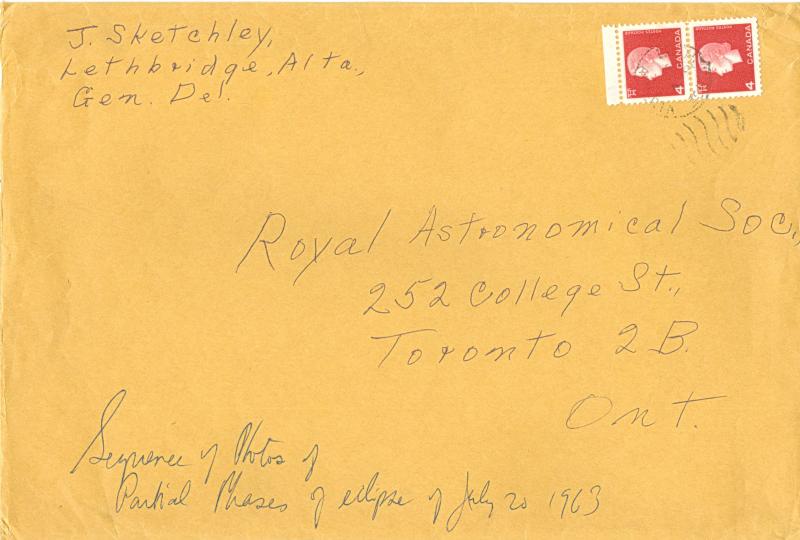 J. Sketchley,
Lethbridge, Alta.,
Gen. Del.
POSTES POSTAGE
CANADA
4
POSTES POSTAGE
CANADA
4
Royal Astronomical Soc.,
252 College St.,
Toronto 2B.
Ont.
Sequence of Photos of
Partial Phases of eclipse of July 20 1963